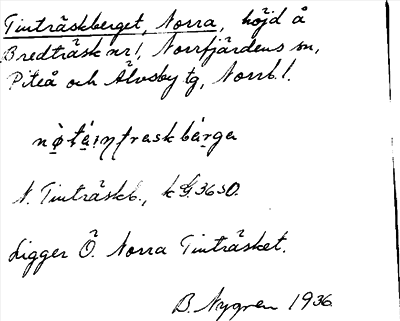 Tinträskberget, Norra, höjd å
Bredträsk nr 1, Norrfjärdens sn,
Piteå och Älvsby tg, Norrb. l.
N. Tinträskb., k G. 36 SO.
Ligger Ö. Norra Tinträsket.
B. Nygren 1936.